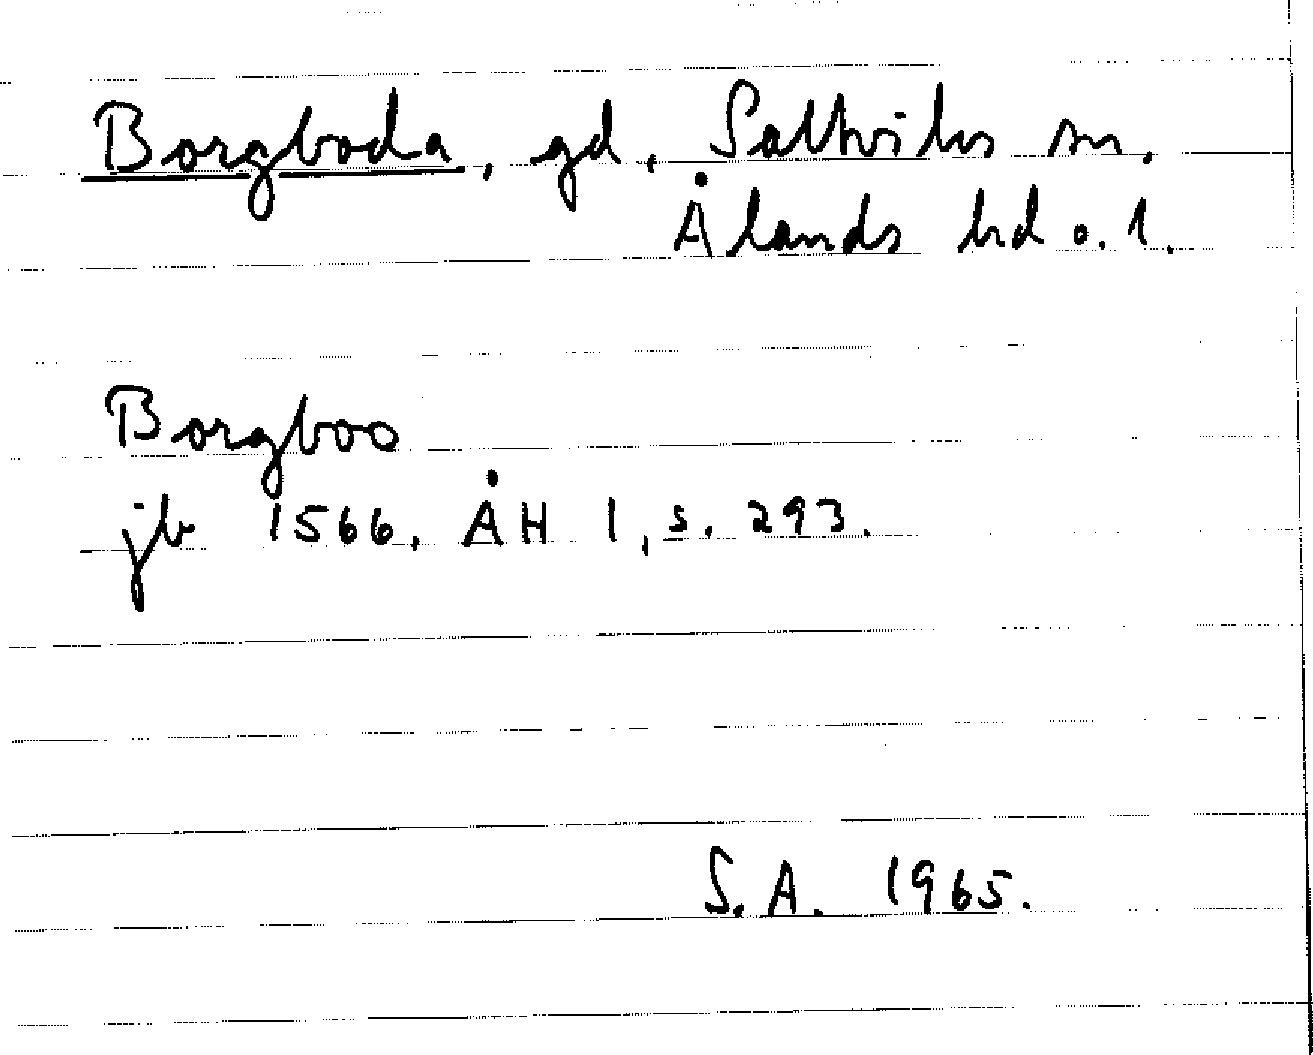 Borgboda, gd, Saltviks sn,
Ålands hd o. l.
Borgboo
jb 1566, ÅH 1, s. 293.
S.A. 1965.